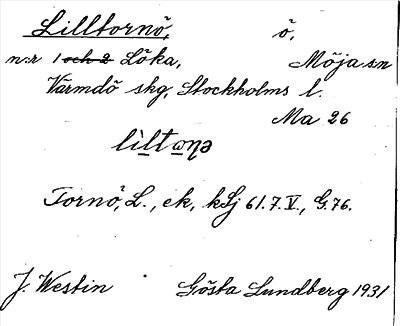 Lilltornö, ö,
n:r 1 och 2 Löka, Möja sn
Värmdö skg, Stockholms l.
Ma 26
Tornö, L., ek, kSj 61.7.V., G.76.
J. Westin Gösta Lundberg 1931